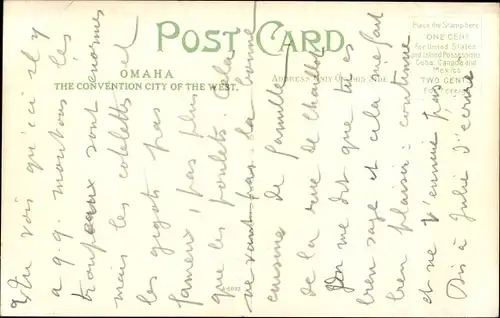 POST CARD
OMAHA
THE CONVENTION CITY OF THE WEST.
ADDRESS ONLY ON THIS SIDE
Place the Stamp here
ONE CENT
for United States
and Island Possessions
Cuba, Canada and
Mexico
TWO CENTS
For Foreign
Tu vois qu'ici il y
a qq. moutons les
troupeaux sont énormes
mais les cotelettes et
les gigots pas
fameux, pas plus
que les poulets. Cela
ne vaut pas la bonne
cuisine de famille
de la rue de Chaillot
On me dit que tu es
bien sage et cela me fait
bien plaisir: continue
et ne t'ennuie pas
Dis à Julie d'écrire